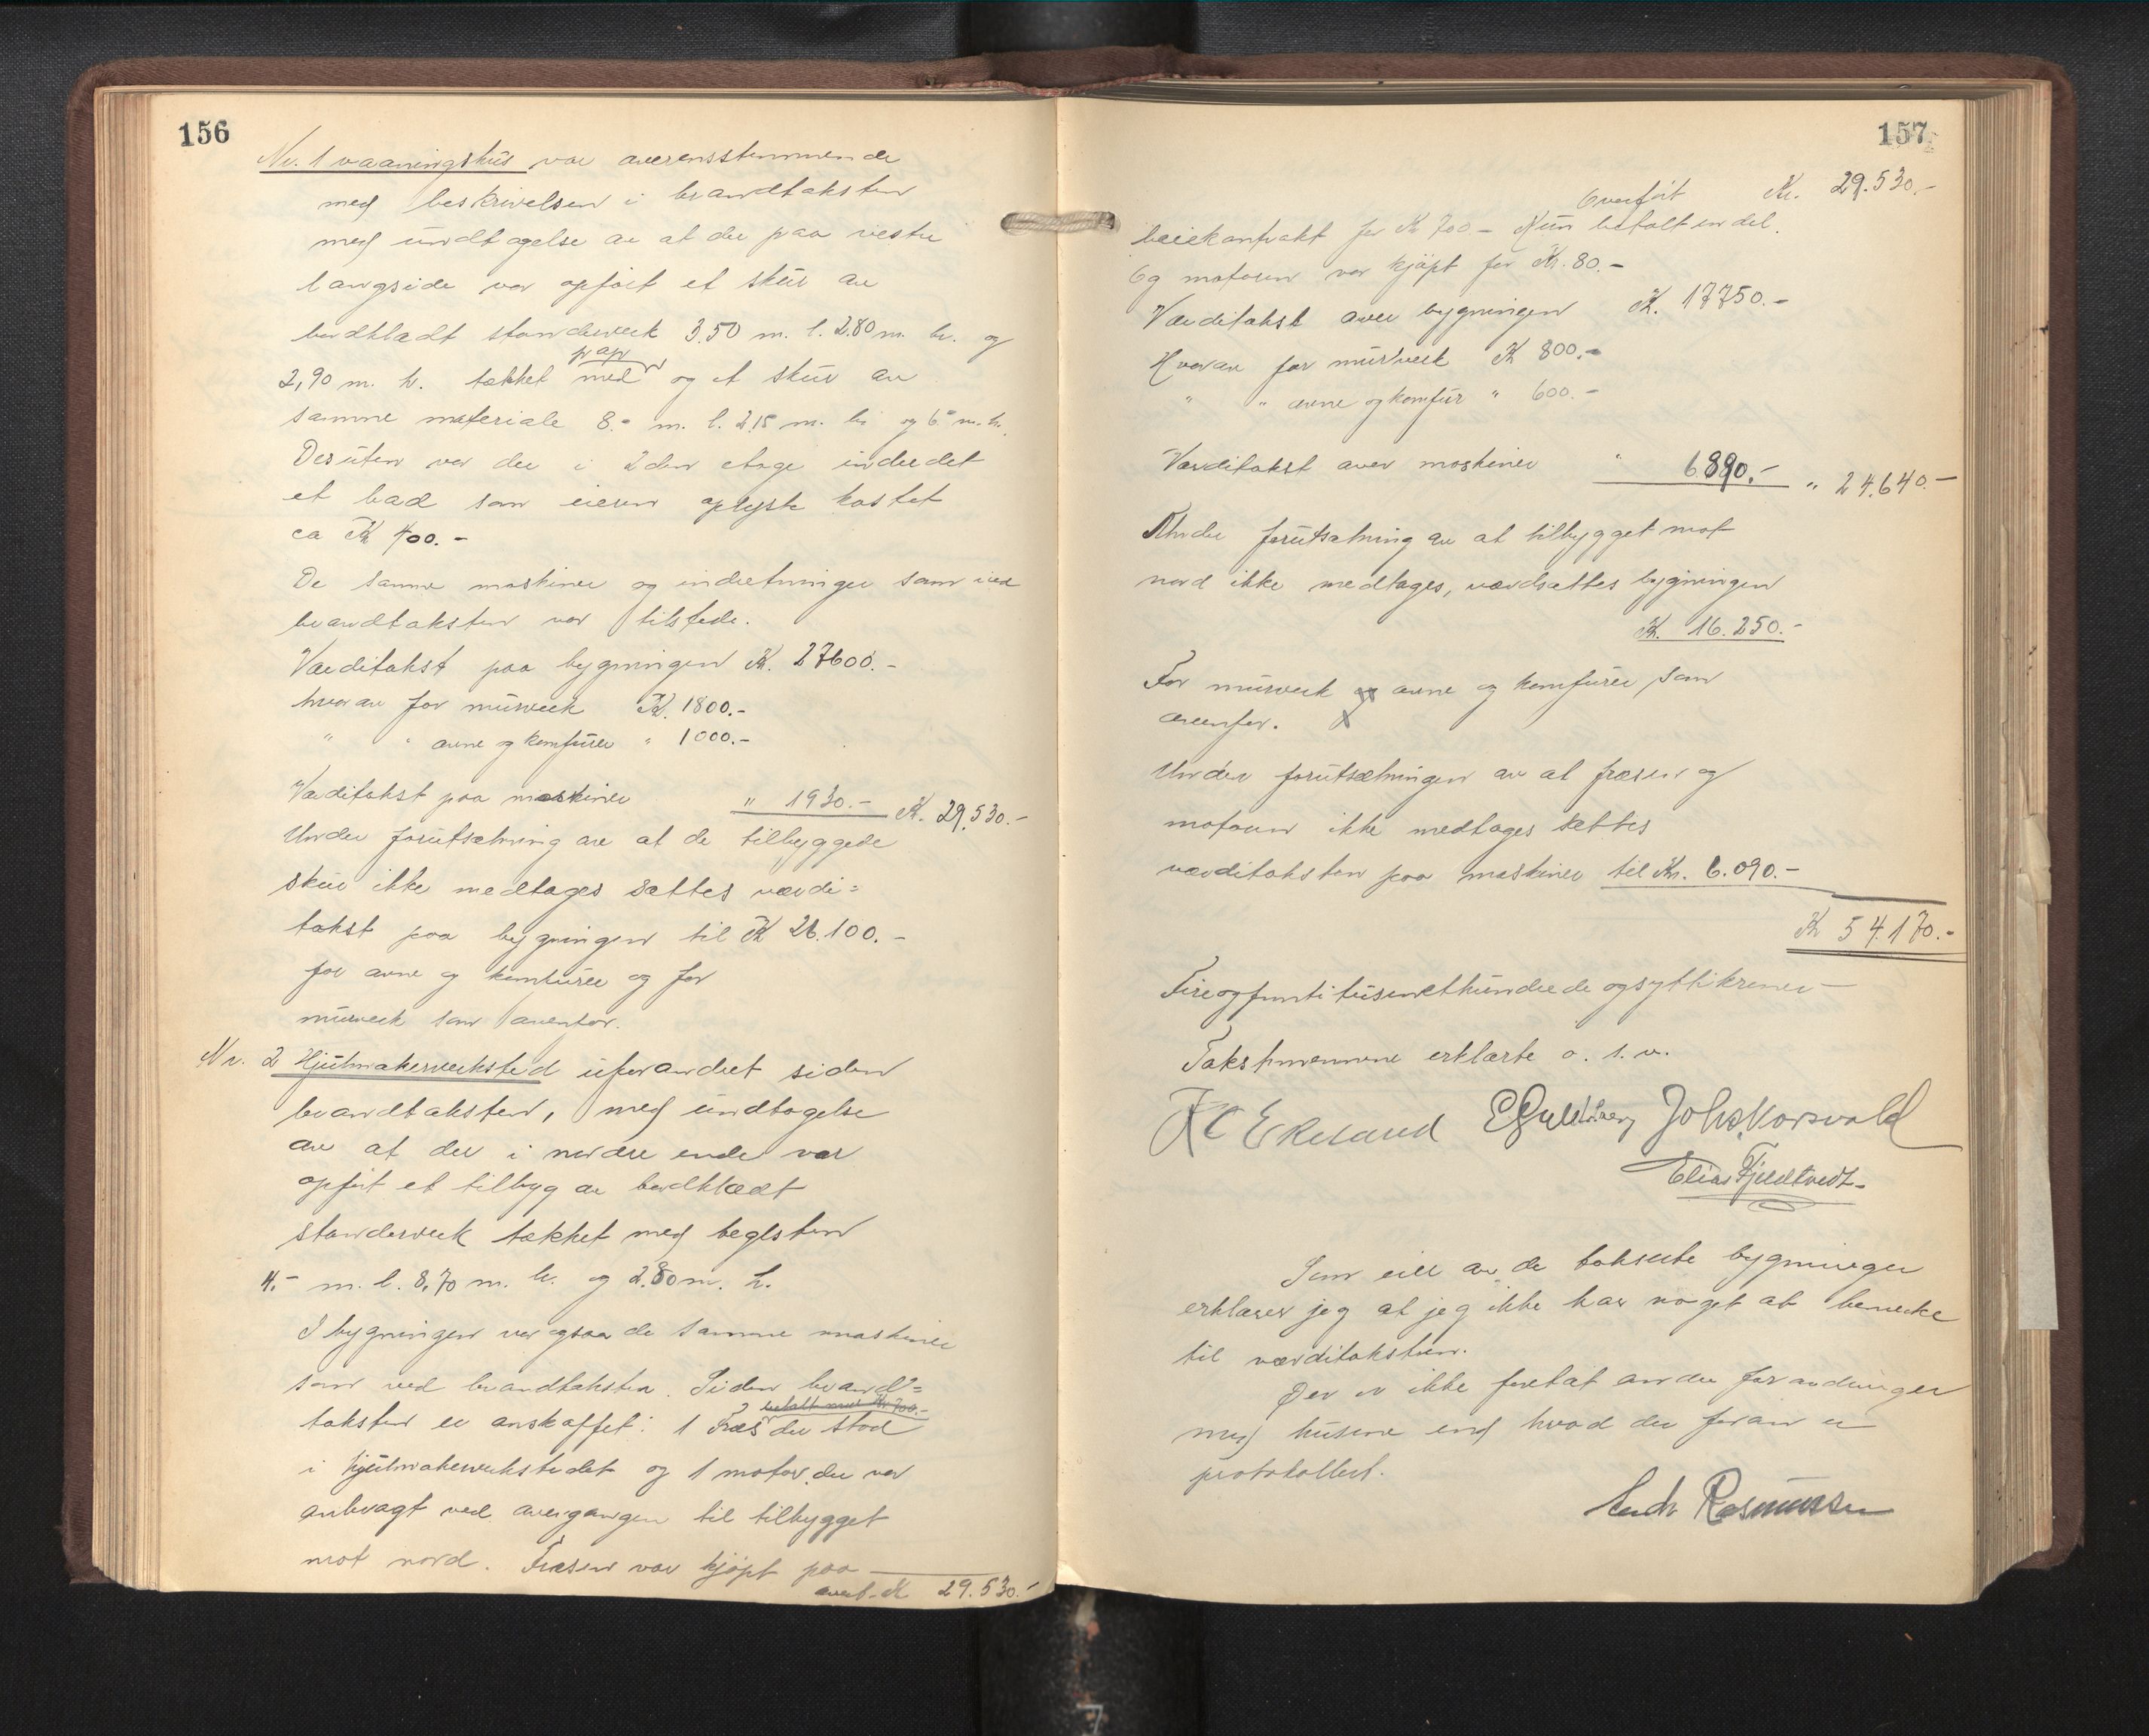 156
Nr. 1 vaaningshus var overensstemmende
med beskrivelsen i brandtaksten
med undtagelse av at der paa vestre
langside var opført et skur av
bordklædt standerverk 3.50 m. l. 2.80 m. br. og
papp
2,90 m. h. tækket med og et skur av
samme materiale 8.- m. l. 2.15 m. br og 6.- m. h.
Desuten var der i 2den etage inderdet
et bad som eieren oplyste kostet
ca Kr 400.-
De samme maskiner og indretninger som ved
brandtaksten var tilstede.
Værditakst paa bygningen Kr. 27600.-
hvorav for murverk Kr. 1800.-
" " ovne og komfurer " 1000.-
Værditakst paa maskiner " 1930.- Kr. 29.530.-
Under forutsætning av at de tilbyggede
skur ikke medtages sættes værdi=
takst paa bygningen til Kr 26.100.-
for ovne og komfurer og for
murverk som ovenfor.
Nr. 2 Hjulmakerverksted uforandret siden
brandtaksten, med undtagelse
av at der i nordre ende var
opført et tilbyg av bordklædt
standerverk tækket med teglsten
4.- m. l. 8,70 m. br. og 2.80 m. h.
I bygningen var ogsaa de samme maskiner
som ved brandtaksten. Siden brand=
betalt med Kr 700.-
taksten er anskaffet: 1 Fræs der stod
i hjulmakerverkstedet og 1 motor der var
anbragt ved overgangen til tilbygget
mot nord. Fræsen var kjøpt paa
overf. Kr 29.530.-
157
Overført Kr. 29.530.-
leiekontrakt for Kr 700.- Kun betalt en del.
Og motoren var kjøpt for Kr. 80.-
Værditakst over bygningen Kr. 17750.-
Hvorav for murverk Kr 800.-
" " ovne og komfur " 600.-
Værditakst over maskiner " 6890.- " 24.640.-
Under forutsætning av at tilbygget mot
nord ikke medtages, værdsættes bygningen
Kr. 16.250.-
For murverk og ovne og komfurer som
ovenfor.
Under forutsætningen av at fræsen og
motoren ikke medtages sættes
værditaksten paa maskiner til Kr. 6.090.-
Kr 54.170.-
Fireogfemti tusenethundrede ogsytti kroner
Takstmennene erklærte o. s. v.
K C Ekeland E Guldberg Johs. Korsvold
Elias Fjeldtvedt.
Som eier av de takserte bygninger
erklærer jeg at jeg ikke har noget at bemerke
til værditaksten.
Der er ikke foretat andre forandringer
med husene end hvad der foran er
protokollert.
Andr Rasmussen